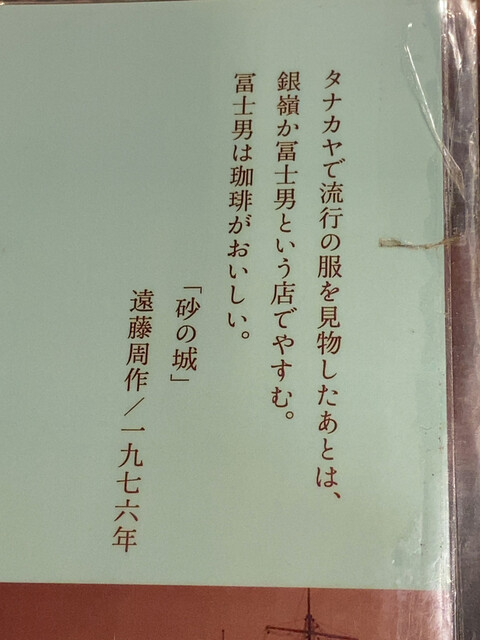 タナカヤで流行の服を見物したあとは、
銀嶺か冨士男という店でやすむ。
冨士男は珈琲がおいしい。
「砂の城」
遠藤周作／一九七六年